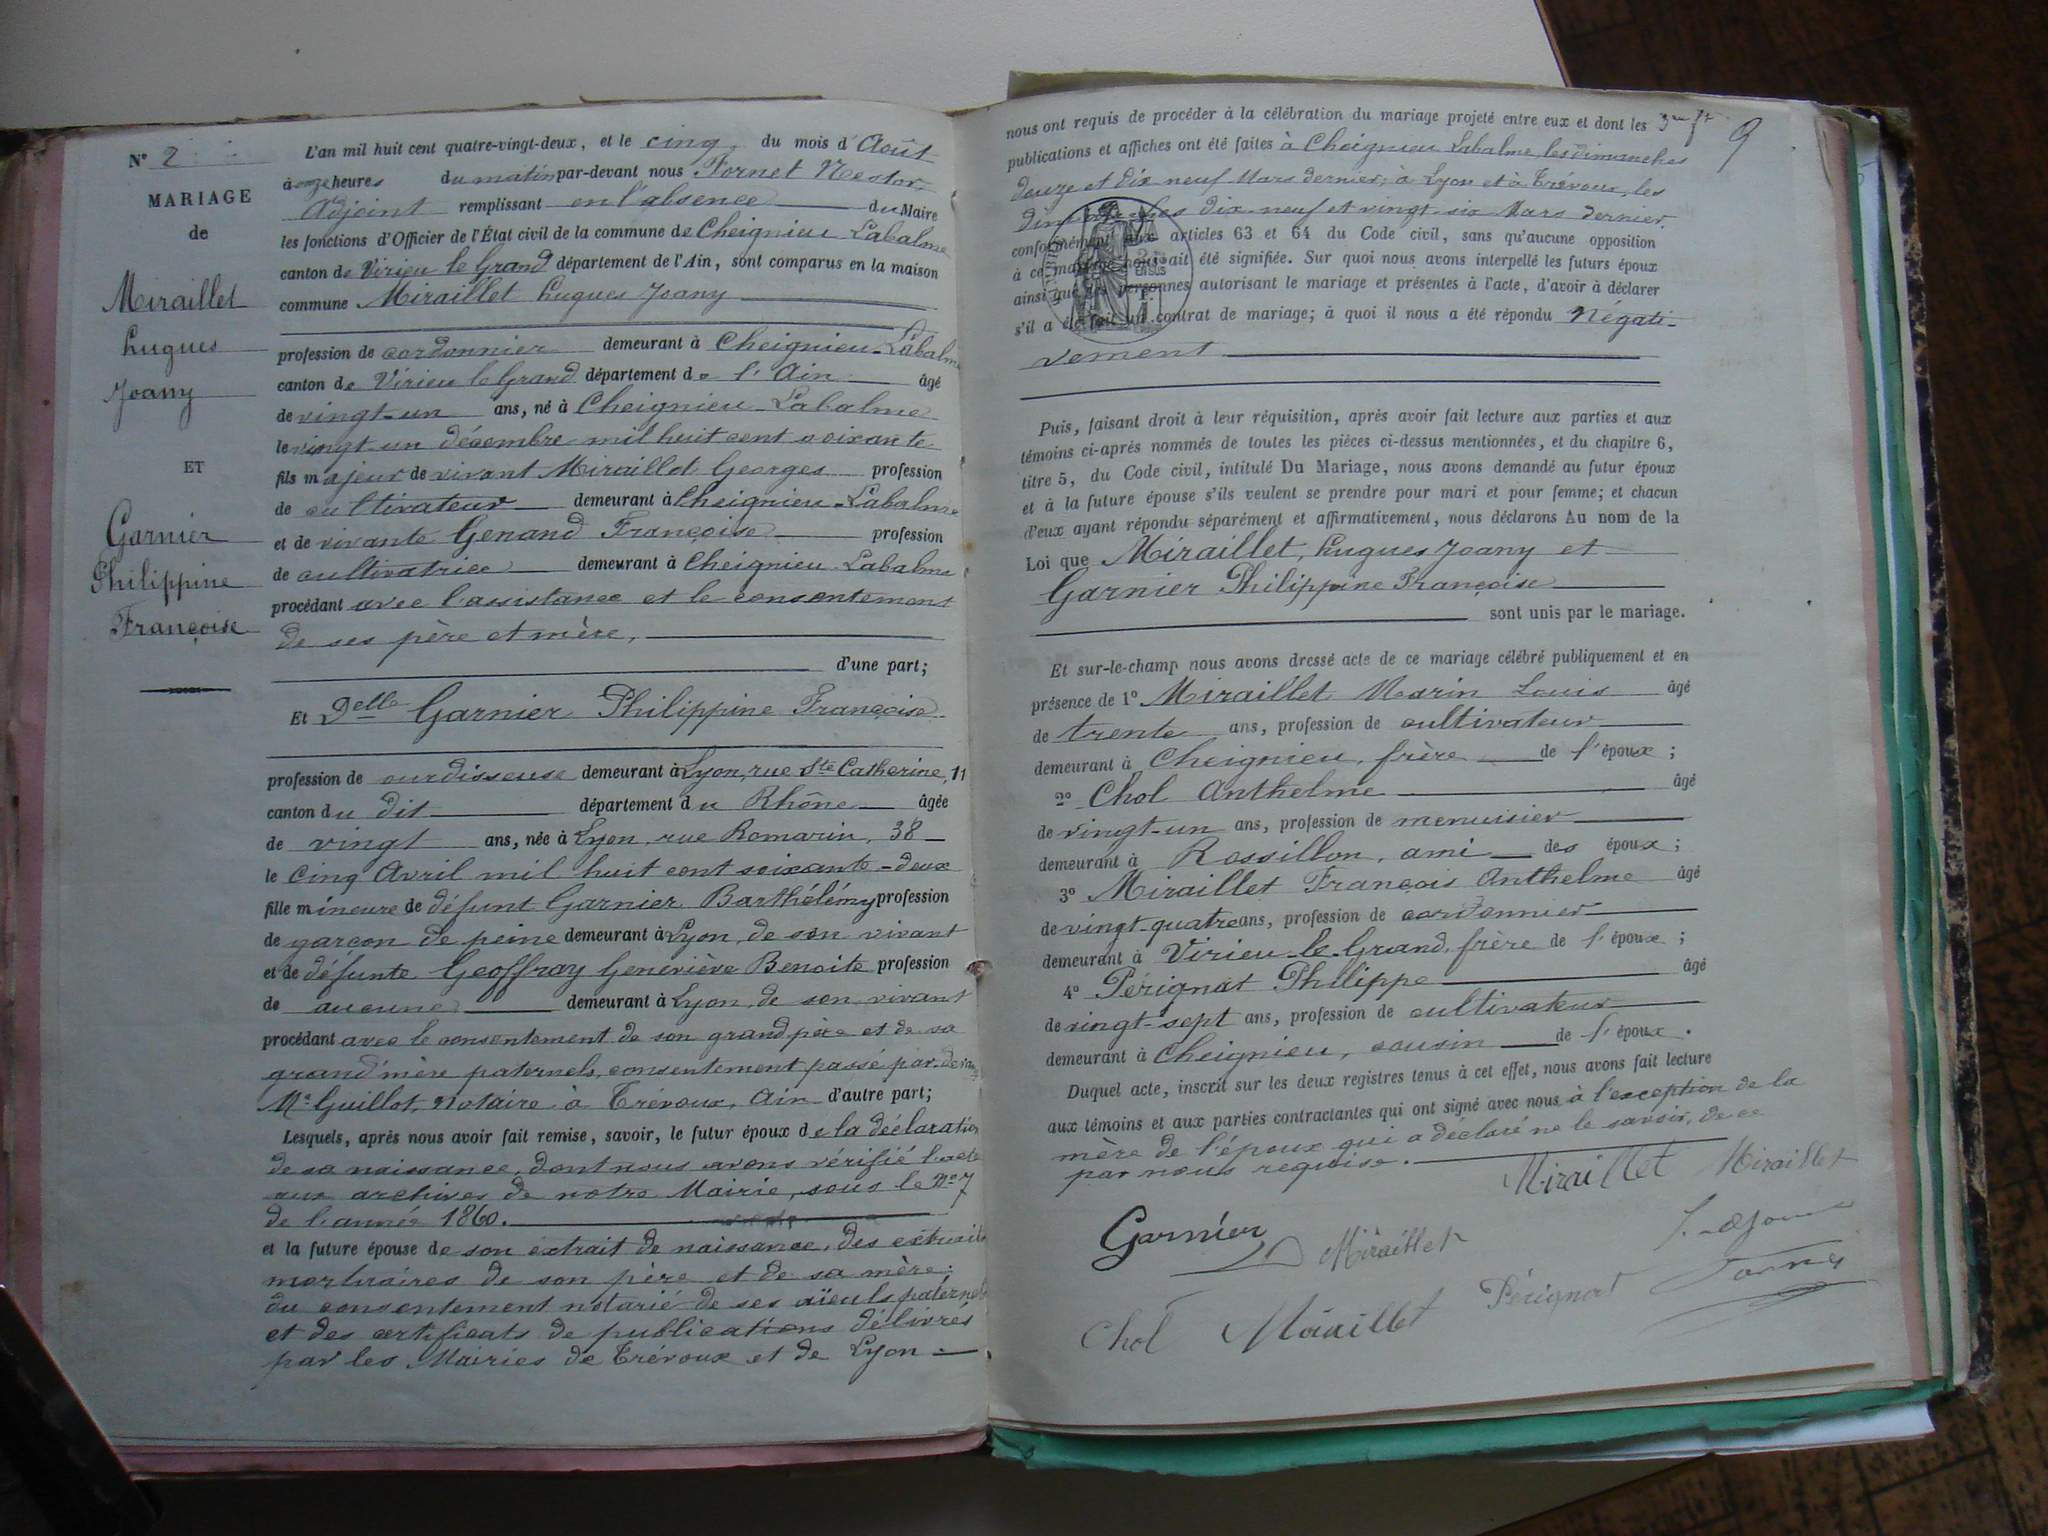 N° 2
MARIAGE
de
Miraillet
Hugues
Joany
ET
Garnier
Philippine
Françoise
L'an mil huit cent quatre-vingt-deux, et le cinq, du mois d'Août
à onze heures du matin par-devant nous Fornet Nestor
Adjoint remplissant en l'absence du Maire
les fonctions d'Officier de l'État civil de la commune de Cheignieu Labalme
canton de Virieu le Grand département de l'Ain, sont comparus en la maison
commune Miraillet Hugues Joany
profession de cordonnier demeurant à Cheignieu-Labalme
canton de Virieu le Grand département de l'Ain âgé
de vingt-un ans, né à Cheignieu-Labalme
le vingt-un décembre mil huit cent soixante
fils majeur de vivant Miraillet Georges profession
de cultivateur demeurant à Cheignieu-Labalme
et de vivante Genand Françoise profession
de cultivatrice demeurant à Cheignieu-Labalme
procédant avec l'assistance et le consentement
de ses père et mère,
d'une part;
Et Delle Garnier Philippine Françoise
profession de ourdisseuse demeurant à Lyon, rue Ste Catherine, 11
canton du dit département du Rhône âgée
de vingt ans, née à Lyon, rue Romarin, 38
le cinq Avril mil huit cent soixante-deux
fille mineure de défunt Garnier Barthélémy profession
de garçon de peine demeurant à Lyon, de son vivant
et de défunte Geoffray Geneviève Benoite profession
de aucune demeurant à Lyon, de son vivant
procédant avec le consentement de son grand père et de sa
grand'mère paternels, consentement passé par-devant
Me Guillot, notaire à Trévoux, Ain d'autre part;
Lesquels, après nous avoir fait remise, savoir, le futur époux de la déclaration
de sa naissance, dont nous avons vérifié l'acte
aux archives de notre Mairie, sous le No 7
de l'année 1860.
et la future épouse de son extrait de naissance, des extraits
mortuaires de son père et de sa mère;
du consentement notarié de ses aïeuls paternels
et des certificats de publications délivrés
par les Mairies de Trévoux et de Lyon
9
nous ont requis de procéder à la célébration du mariage projeté entre eux et dont les
publications et affiches ont été faites à Cheignieu Labalme, les dimanches
douze et dix neuf Mars dernier; à Lyon et à Trévoux, les
dimanches dix-neuf et vingt-six Mars dernier.
conformément aux articles 63 et 64 du Code civil, sans qu'aucune opposition
à ce mariage nous ait été signifiée. Sur quoi nous avons interpellé les futurs époux
ainsi que les personnes autorisant le mariage et présentes à l'acte, d'avoir à déclarer
s'il a été fait un contrat de mariage; à quoi il nous a été répondu Négati-
vement
Puis, faisant droit à leur réquisition, après avoir fait lecture aux parties et aux
témoins ci-après nommés de toutes les pièces ci-dessus mentionnées, et du chapitre 6,
titre 5, du Code civil, intitulé Du Mariage, nous avons demandé au futur époux
et à la future épouse s'ils veulent se prendre pour mari et pour femme; et chacun
d'eux ayant répondu séparément et affirmativement, nous déclarons Au nom de la
Loi que Miraillet, Hugues Joany et
Garnier Philippine Françoise
sont unis par le mariage.
Et sur-le-champ nous avons dressé acte de ce mariage célébré publiquement et en
présence de 1° Miraillet Marin Louis âgé
de trente ans, profession de cultivateur
demeurant à Cheignieu, frère de l'époux;
2° Chol Anthelme âgé
de vingt-un ans, profession de menuisier
demeurant à Rossillon, ami des époux;
3° Miraillet François Anthelme âgé
de vingt-quatre ans, profession de cordonnier
demeurant à Virieu-le-Grand, frère de l'époux;
4° Pérignat Philippe âgé
de vingt-sept ans, profession de cultivateur
demeurant à Cheignieu, cousin de l'époux.
Duquel acte, inscrit sur les deux registres tenus à cet effet, nous avons fait lecture
aux témoins et aux parties contractantes qui ont signé avec nous à l'exception de la
mère de l'époux qui a déclaré ne le savoir, de ce
par nous requise.
Miraillet Miraillet
Garnier Miraillet
Chol Miraillet Pérignat Fornet